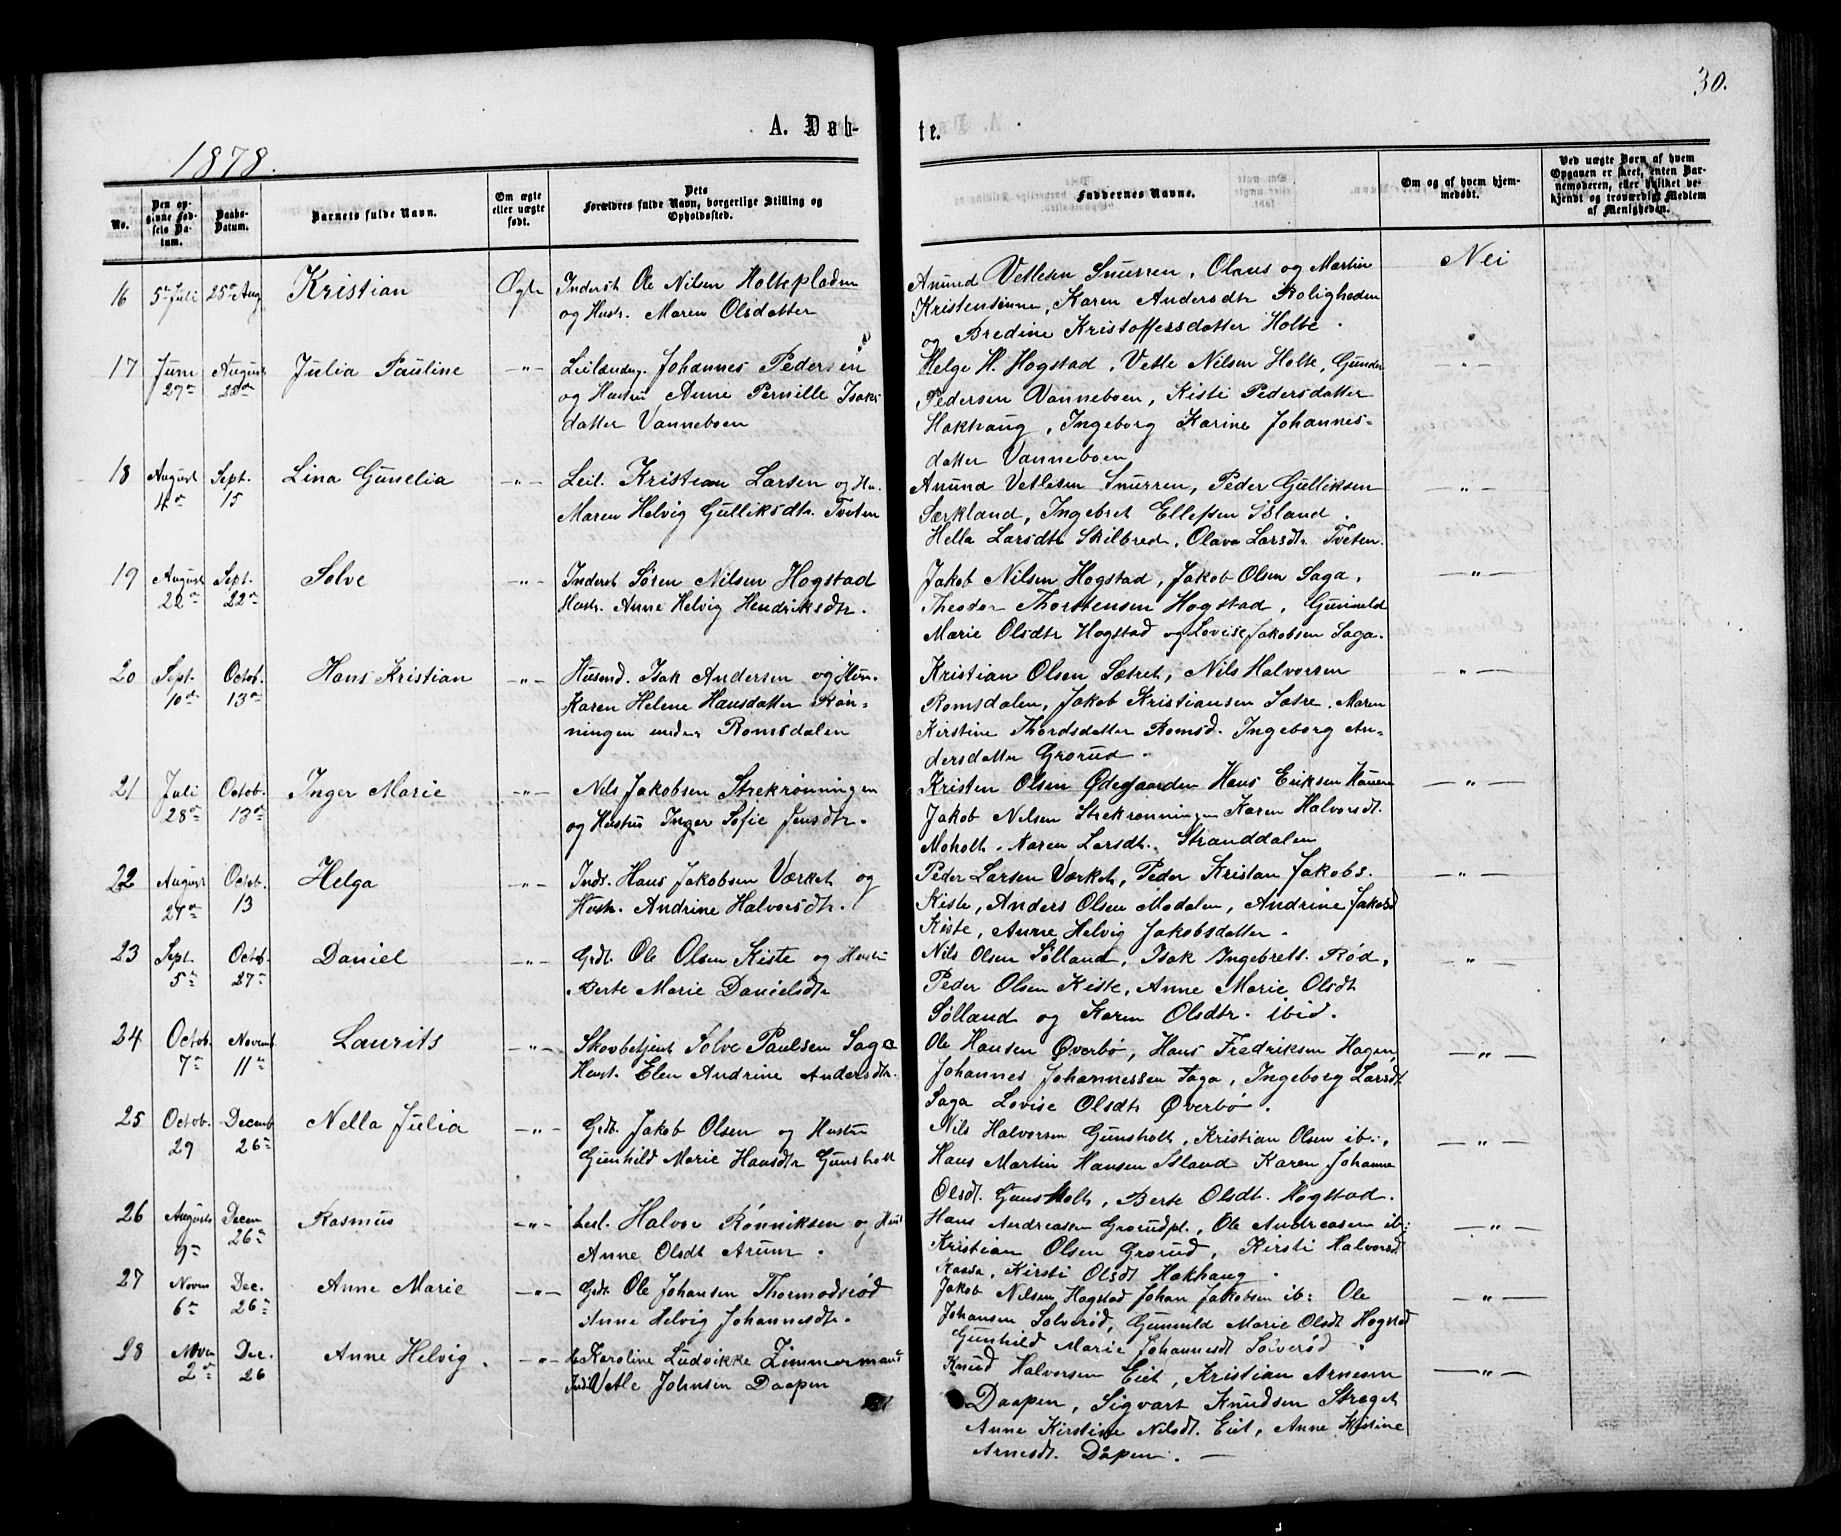 30.
A. Døb-
te.
1878.
No.
Den opgivne Fødsels Datum.
Daabs-Datum.
Barnets fulde Navn.
Om ægte eller uægte født.
Dets Forældres fulde Navn, borgerlige Stilling og Opholdssted.
Faddernes Navne.
Om og af hvem hjemmedøbt.
Ved uægte Børn af hvem Opgaven er skeet, enten Barnemoderen, eller hvilket bekjendt og troværdigt Medlem af Menigheden.
16 5te Juli 25de Aug Kristian Ægte Inderst Ole Nilsen Holtepladsen
og Hustr. Maren Olsdatter
Anund Vetlesen Snurren, Olaus og Martin Nei
Kristensønne, Karen Andersdtr Roligheden
og Bredine Kristoffersdatter Holte.
17 Juni 27de August 25de Julia Pauline -"- Leilændig. Johannes Pedersen
og Hustru Anne Pernille Isaks
datter Vanneboen
Helge H. Hogstad, Vetle Nilsen Holte, Gunder -"-
Pedersen Vanneboen, Kisti Pedersdatter
Hokhaug, Ingeborg Karine Johannes-
datter Vanneboen
18 August 4de Sept. 15 Lina Gunelia -"- Leil. Kristian Larsen og Hu.
Maren Helvig Gulliksdtr. Tveten
Anund Vetlesen Snurren, Peder Gulliksen -"-
Særkland, Ingebret Ellefsen Island.
Hella Larsdtr Skilbred, Olava Larsdtr Tveten.
19 August 22de Sept. 22de Solve -"- Inderst Søren Nilsen Hogstad
Hustr. Anne Helvig Hendriksdtr.
Jakob Nilsen Hogstad, Jakob Olsen Saga, -"-
Theodor Thorstensen Hogstad, Gunuld
Marie Olsdtr Hogstad og Lovise Jakobsen Saga.
20 Sept. 10de Octob. 13de Hans Kristian -"- Husmd. Isak Andersen og Hu.
Karen Helene Hansdatter Røn-
ningen under Romsdalen
Kristian Olsen Sætret, Nils Halvorsen -"-
Romsdalen, Jakob Kristiansen Sætre, Maren
Kirstine Thordsdatter Romsd. Ingeborg An-
dersdatter Grorud.
21 Juli 28de Octob. 13de Inger Marie -"- Nils Jakobsen Strekrønningen
og Hustru Inger Sofie Jensdtr.
Kristen Olsen Ødegaarden Hans Eriksen -"-
Jakob Nilsen Strekrønningen Karen Halvorsdt.
Moholt. Maren Larsdt. Stranddalen
22 August 27de Octob. 13 Helga -"- Inds. Hans Jakobsen Værket og
Hustr. Andrine Halvorsdtr.
Peder Larsen Værket, Peder Kristian Jakobs. -"-
Kiste, Anders Olsen Modalen, Andrine Jakobsd
Kiste, Anne Helvig Jakobsdatter.
23 Sept. 5te Octob. 27de Daniel -"- Grdb. Ole Olsen Kiste og Hustru
Berte Marie Danielsdtr
Nils Olsen Sølland, Isak Ingebrets. Rød, -"-
Peder Olsen Kiste, Anne Marie Olsdt
Sølland og Karen Olsdtr. ibid.
24 Octob. 7de Novemb. 11te Laurits -"- Skovbetjent Solve Paulsen Saga
Hust. Elen Andrine Andersdtr.
Ole Hansen Øverbø, Hans Fredriksen Hagen, -"-
Johannes Johannessen Saga, Ingeborg Larsdt
Saga Lovise Olsdtr Øverbø.
25 Octob. 29 Decemb 26de Nella Julia -"- Grdb. Jakob Olsen og Hustru
Gunhild Marie Hansdtr Gunsholt
Nils Halvorsen Gunsholt, Kristian Olsen ib:, -"-
Hans Martin Hansen Island Karen Johanne
Olsdt. Gunsholt, Berte Olsdt. Hogstad.
26 August 9de Decem 26de Rasmus -"- Leil. Halvor Rønniksen og Hust
Anne Olsdt Arum.
Hans Andreassen Grorudpl., Ole Andreasen ib: -"-
Kristian Olsen Grorud, Kirsti Halvorsd
Kaasa, Kirsti Olsdt Hokhaug.
27 Novem 6te Dec. 26de Anne Marie -"- Grdb. Ole Johansen Thormodsrød
Anne Helvig Johannesdtr.
Jakob Nilsen Hogstad Johan Jakobsen ib: Ole -"-
Johansen Solverød, Gunuld Marie Olsdt Hogstad
Gunhild Marie Johannesdt Solverød.
28 Novem 2de Dec. 26 Anne Helvig. -"- Karoline Ludvikke Zimmermans
Inds. Vetle Johnsen Daapen
Knud Halvorsen Eiet, Kristian Arnesen -"-
Daapen, Sigvart Knudsen Streget
Anne Kirstine Nilsdt. Eiet, Anne Kristine
Arnesdt. Dapen.